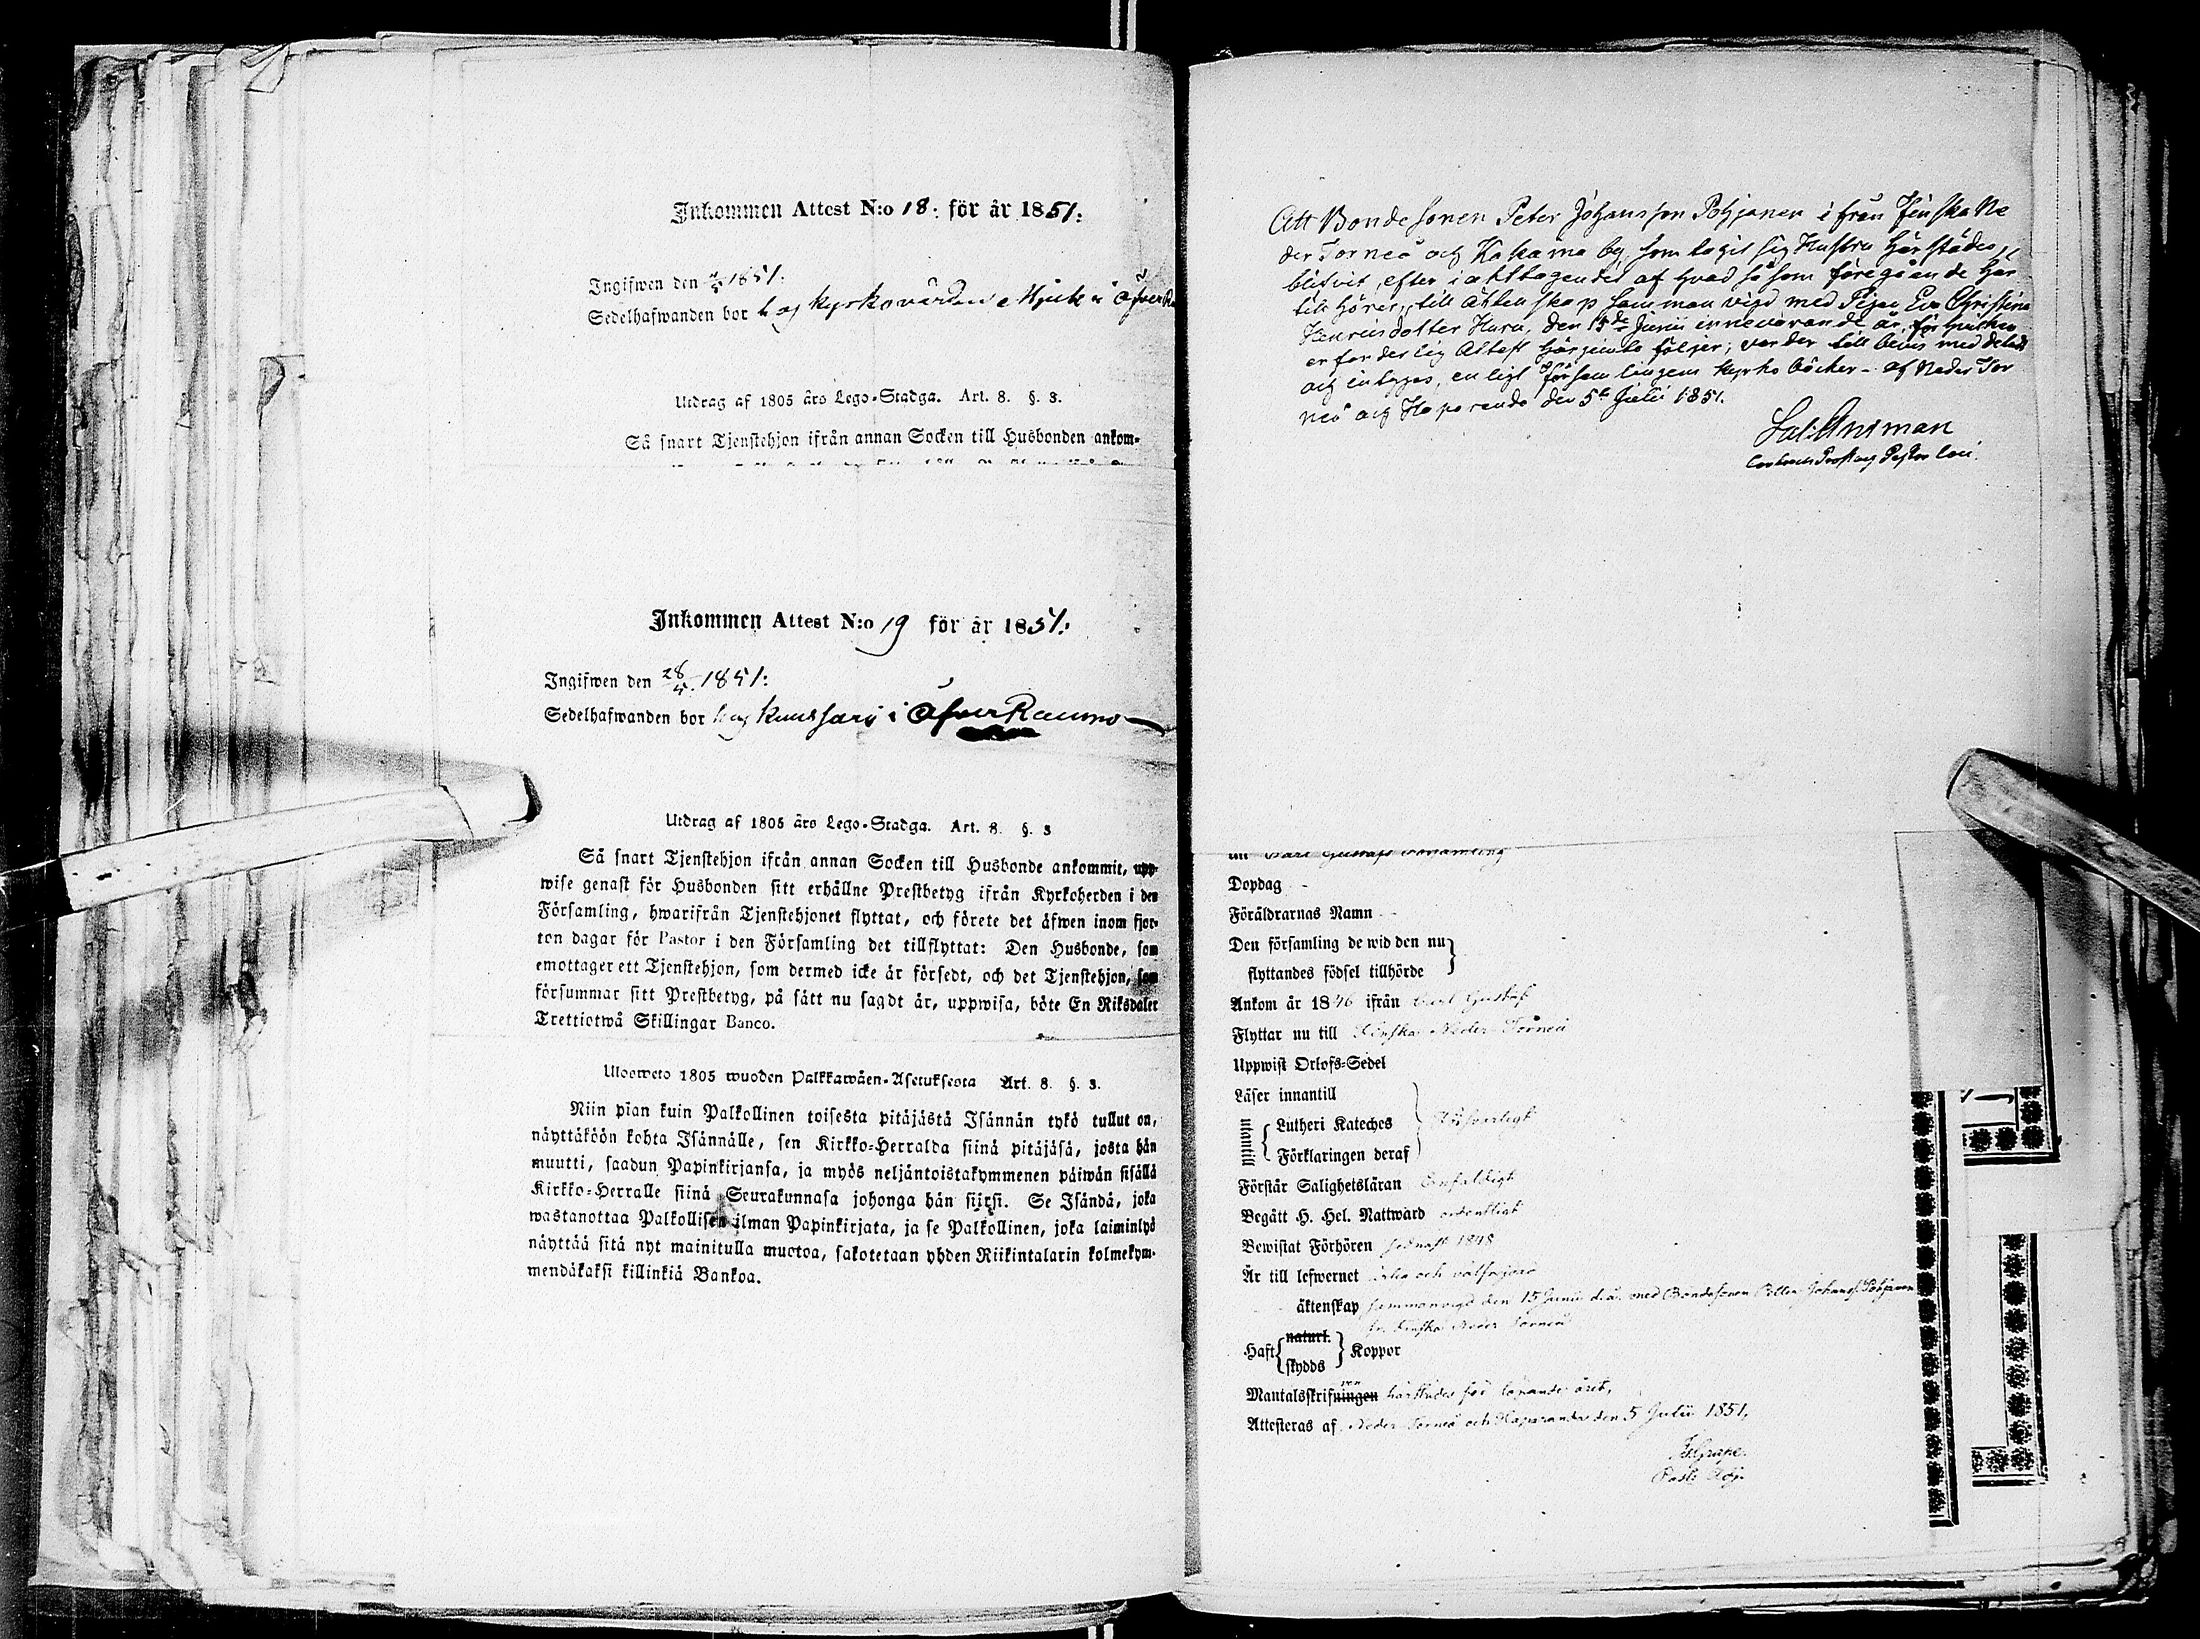 Inkommen Attest N:o 18: för år 1851:
Ingifwen den 1851:
Sedelhafwanden bor hos kyrkovärden i
Utdrag af 1805 års Lego-Stadga. Art. 8. §. 3.
Så snart Tjenstehjon ifrån annan Socken till Husbonden ankom-
Inkommen Attest N:o 19 för år 1851:
Ingifwen den 28/5. 1851:
Sedelhafwanden bor hos i Öfver Raumo
Utdrag af 1805 års Lego-Stadga. Art. 8. §. 3
Så snart Tjenstehjon ifrån annan Socken till Husbonde ankommit, upp-
wise genast för Husbonden sitt erhållne Prestbetyg ifrån Kyrkoherden i den
Församling, hwarifrån Tjenstehjonet flyttat, och förete det äfwen inom fjor-
ton dagar för Pastor i den Församling det tillflyttat: Den Husbonde, som
emottager ett Tjenstehjon, som dermed icke är försedt, och det Tjenstehjon, som
försummar sitt Prestbetyg, på sätt nu sagdt är, uppwisa, böte En Riksdaler
Trettiotwå Skillingar Banco.
Ulosweto 1805 wuoden Palkkawäen-Asetuksesta Art. 8. §. 3.
Niin pian kuin Palkollinen toisesta pitäjästä Isännän tykö tullut on,
näyttäköön kohta Isännälle, sen Kirkko-Herralda siinä pitäjäsä, josta hän
muutti, saadun Papinkirjansa, ja myös neljäntoistakymmenen päiwän sisällä
Kirkko-Herralle siinä Seurakunnasa johonga hän siirsi. Se Isändä, joka
wastanottaa Palkollisen ilman Papinkirjata, ja se Palkollinen, joka laiminlyö
näyttää sitä nyt mainitulla muotoa, sakotetaan yhden Riikintalarin kolmekym-
mendäkaksi killinkiä Bankoa.
Att Bondesonen Peter Johansson Pohjanen i från Finska Ne
der Torneå och Kakama by, som tagit sig Hustru härstädes,
blifvit, efter iakttagandet af hvad såsom föregående här
till hörer, till Äktenskap sammanvigd med Pigan Eva Christina
Henricsdotter Kuru, den 15de Junii innevarande år, för hvilken
erforderlig Attest härjemte följer; varder till bevis meddelat
och intyges, enligt församlingens kyrkoböcker - af Neder Tor
neå och Haparanda den 5te Julii 1851.
Contracts Prost och Pastor
Dopdag
Föräldrarnas Namn
Den församling de wid den nu
flyttandes födsel tillhörde
Ankom år 1846 ifrån Carl Gustaf
Flyttar nu till Finska Neder Torneå
Uppwist Orlofs-Sedel
Läser innantill
utantill
Lutheri Kateches
Förklaringen deraf
Förstår Salighetsläran Enfaldigt
Begått H. Hel. Nattward ordentligt
Bewistat Förhören sednast 1848
Är till lefwernet ärlig och välfrejdad
äktenskap sammanvigd den 15 Junii d.å. med Bondesonen Petter Johanss. Pohjanen
fr. Finska Neder Torneå
Haft
naturl.
skydds
Koppor
Mantalsskrifningen ven härstädes för löpande året,
Attesteras af Neder Torneå och Haparanda den 5 Julii 1851,
Grape
Past. Adj.